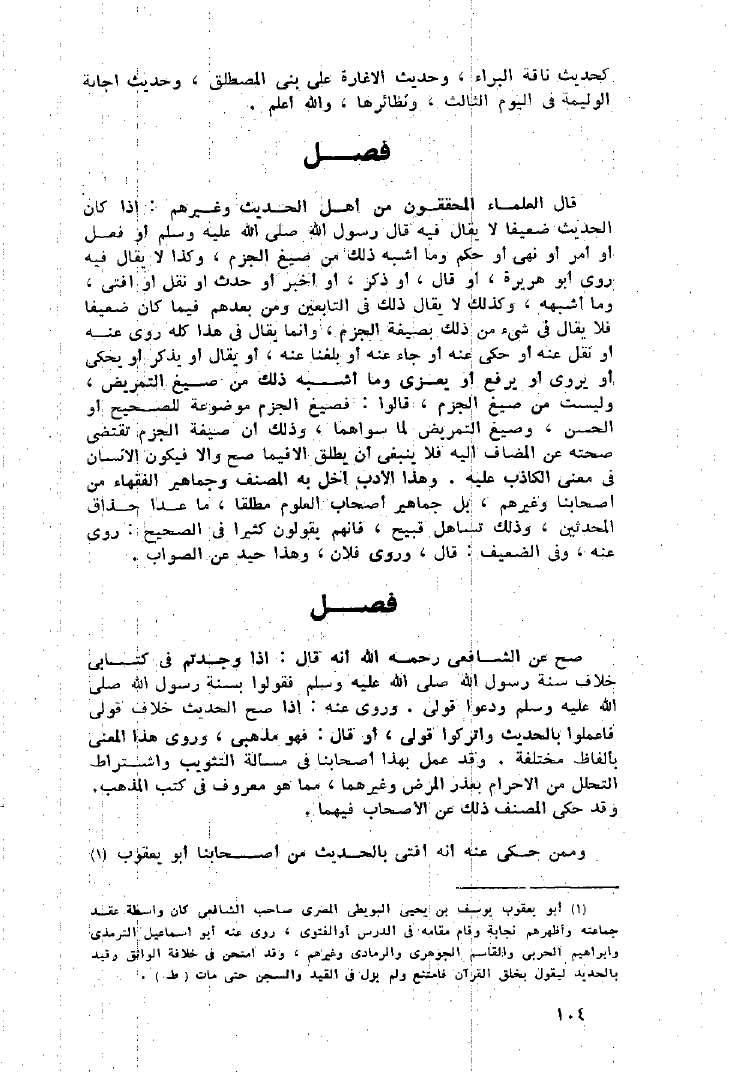 كحديث ناقة البراء ، وحديث الاغارة على بنى المصطلق ، وحديث اجابة
الوليمة فى اليوم الثالث ، ونظائرها ، والله أعلم .
فصــــل
قال العلمــاء المحققــون من أهــل الحــديث وغــيرهم : إذا كان
الحديث ضعيفا لا يقال فيه قال رسول الله صلى الله عليه وسلم أو فعــل
أو أمر أو نهى أو حكم وما أشبه ذلك من صيغ الجزم ، وكذا لا يقال فيه
روى أبو هريرة ، أو قال ، أو ذكر ، أو أخبر أو حدث او نقل أو افتى ،
وما أشبهه ، وكذلك لا يقال ذلك فى التابعين ومن بعدهم فيما كان ضعيفا
فلا يقال فى شىء من ذلك بصيغة الجزم ، وانما يقال فى هذا كله روى عنــه
او نقل عنه أو حكى عنه أو جاء عنه أو بلغنا عنه ، أو يقال أو يذكر او يحكى
أو يروى او يرفع أو يعــزى وما أشــبه ذلك من صــيغ التمريض ،
وليست من صيغ الجزم ، قالوا : فصيغ الجزم موضوعة للصــحيح أو
الحسن ، وصيغ التمريض لما سواهما ، وذلك أن صيغة الجزم تقتضى
صحته عن المضاف اليه فلا ينبغى أن يطلق الافيما صح والا فيكون الانسان
فى معنى الكاذب عليه . وهذا الأدب أخل به المصنف وجماهير الفقهاء من
اصحابنا وغيرهم ، بل جماهير أصحاب العلوم مطلقا ، ما عــدا حــذاق
المحدثين ، وذلك تساهل قبيح ، فانهم يقولون كثيرا فى الصحيح : روى
عنه ، وفى الضعيف : قال ، وروى فلان ، وهذا حيد عن الصواب .
فصــــل
صح عن الشــافعى رحمــه الله أنه قال : اذا وجــدتم فى كتــابى
خلاف سنة رسول الله صلى الله عليه وسلم فقولوا بسنة رسول الله صلى
الله عليه وسلم ودعوا قولى . وروى عنه : إذا صح الحديث خلاف قولى
فاعملوا بالحديث واتركوا قولى ، أو قال : فهو مذهبى ، وروى هذا المعنى
بالفاظ مختلفة . وقد عمل بهذا أصحابنا فى مسالة التثويب واشــتراط
التحلل من الاحرام بعذر المرض وغيرهما ، مما هو معروف فى كتب المذهب .
وقد حكى المصنف ذلك عن الأصحاب فيهما .
وممن حــكى عنه أنه أفتى بالحديث من أصــحابنا أبو يعقوب (١)
(١) أبو يعقوب يوسف بن يحيى البويطى المصرى صاحب الشافعى كان واسطة عقــد
جماعته وأظهرهم نجابة وقام مقامه فى الدرس أوالفتوى ، روى عنه أبو اسماعيل الترمذى
وابراهيم الحربى والقاسم الجوهرى والرمادى وغيرهم ، وقد امتحن فى خلافة الواثق وقيد
بالحديد ليقول بخلق القرآن فامتنع ولم يزل فى القيد والسجن حتى مات ( ط ) .
١٠٤